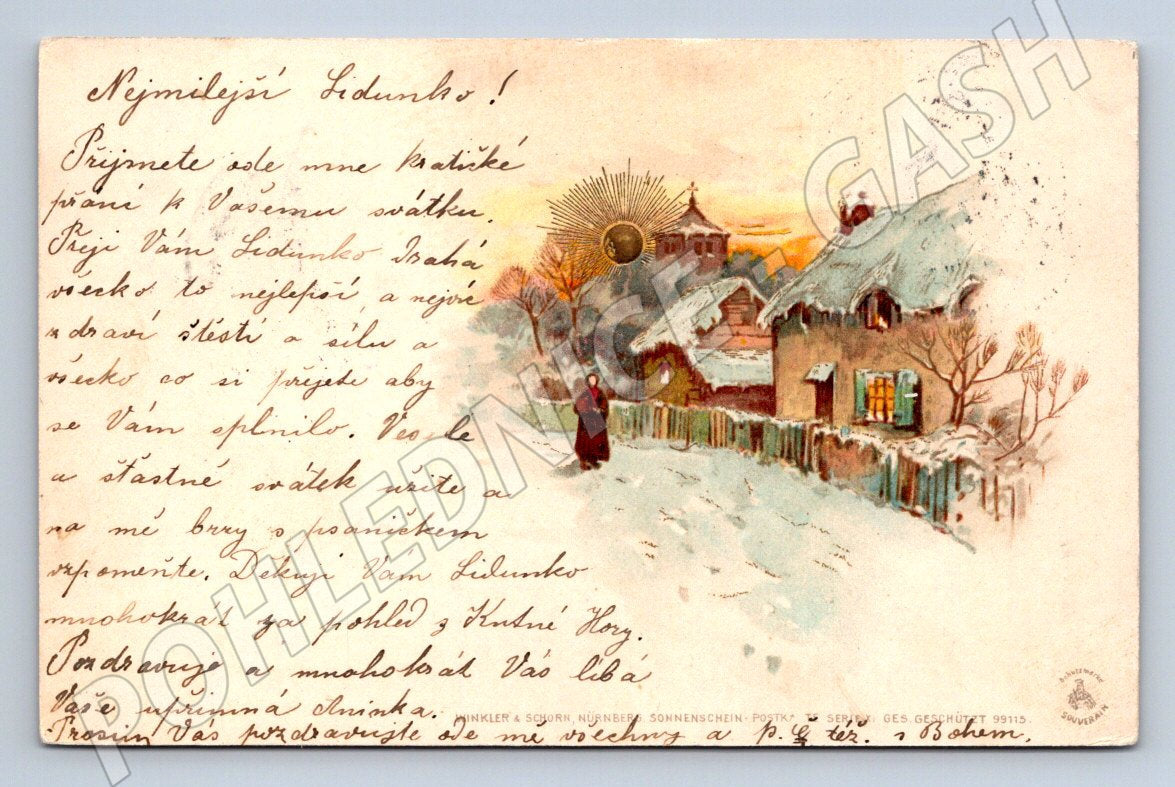 Nejmilejší Lidunko!
Přijmete ode mne kratičké
přání k Vašemu svátku.
Přeji Vám Lidunko Drahá
všecko to nejlepší a nejvíc
zdraví štěstí a sílu a
všecko co si přejete aby
se Vám splnilo. Veselé
a šťastné svátek užite a
na mé brzy s psaníčkem
vzpomeňte. Děkuji Vám Lidunko
mnohokrát za pohled z Kutné Hory.
Pozdravuje a mnohokrát Vás líbá
Vaše upřímná Aninka.
WINKLER & SCHORN, NÜRNBERG. SONNENSCHEIN-POSTK. SERIE X. GES. GESCHÜTZT 99115.
Schutzmarke
SOUVERAIN
Prosím Vás pozdravujte ode mé všechny a p. Č též. s Bohem.
POHLEDNICE - GASH